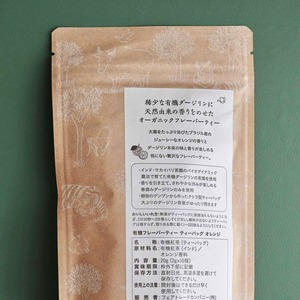 稀少な有機ダージリンに
天然由来の香りをのせた
オーガニックフレーバーティー
太陽をたっぷり浴びたブラジル産の
ジューシーなオレンジの香りと
ダージリン本来の味と香りが楽しめる
他にない贅沢なフレーバーティー。
・インド・マカイバリ茶園のバイオダイナミック
農法で育てた有機ダージリンの茶葉を使用
春摘みダージリンのみを使用
大ぶりのダージリン茶葉がゆったり開きます
有機フレーバーティー ティーバッグ オレンジ
名 称 有機紅茶（ティーバッグ）
原材料名 有機紅茶（インド）／
オレンジ香料
内容量 20g（2g×10個）
賞味期限 枠外下部に記載
保存方法 直射日光、高温多湿を避けて
保存してください。
使用上の注意 開封後はできるだけ早く
使用してください。
販売者 フェアトレードカンパニー（株）